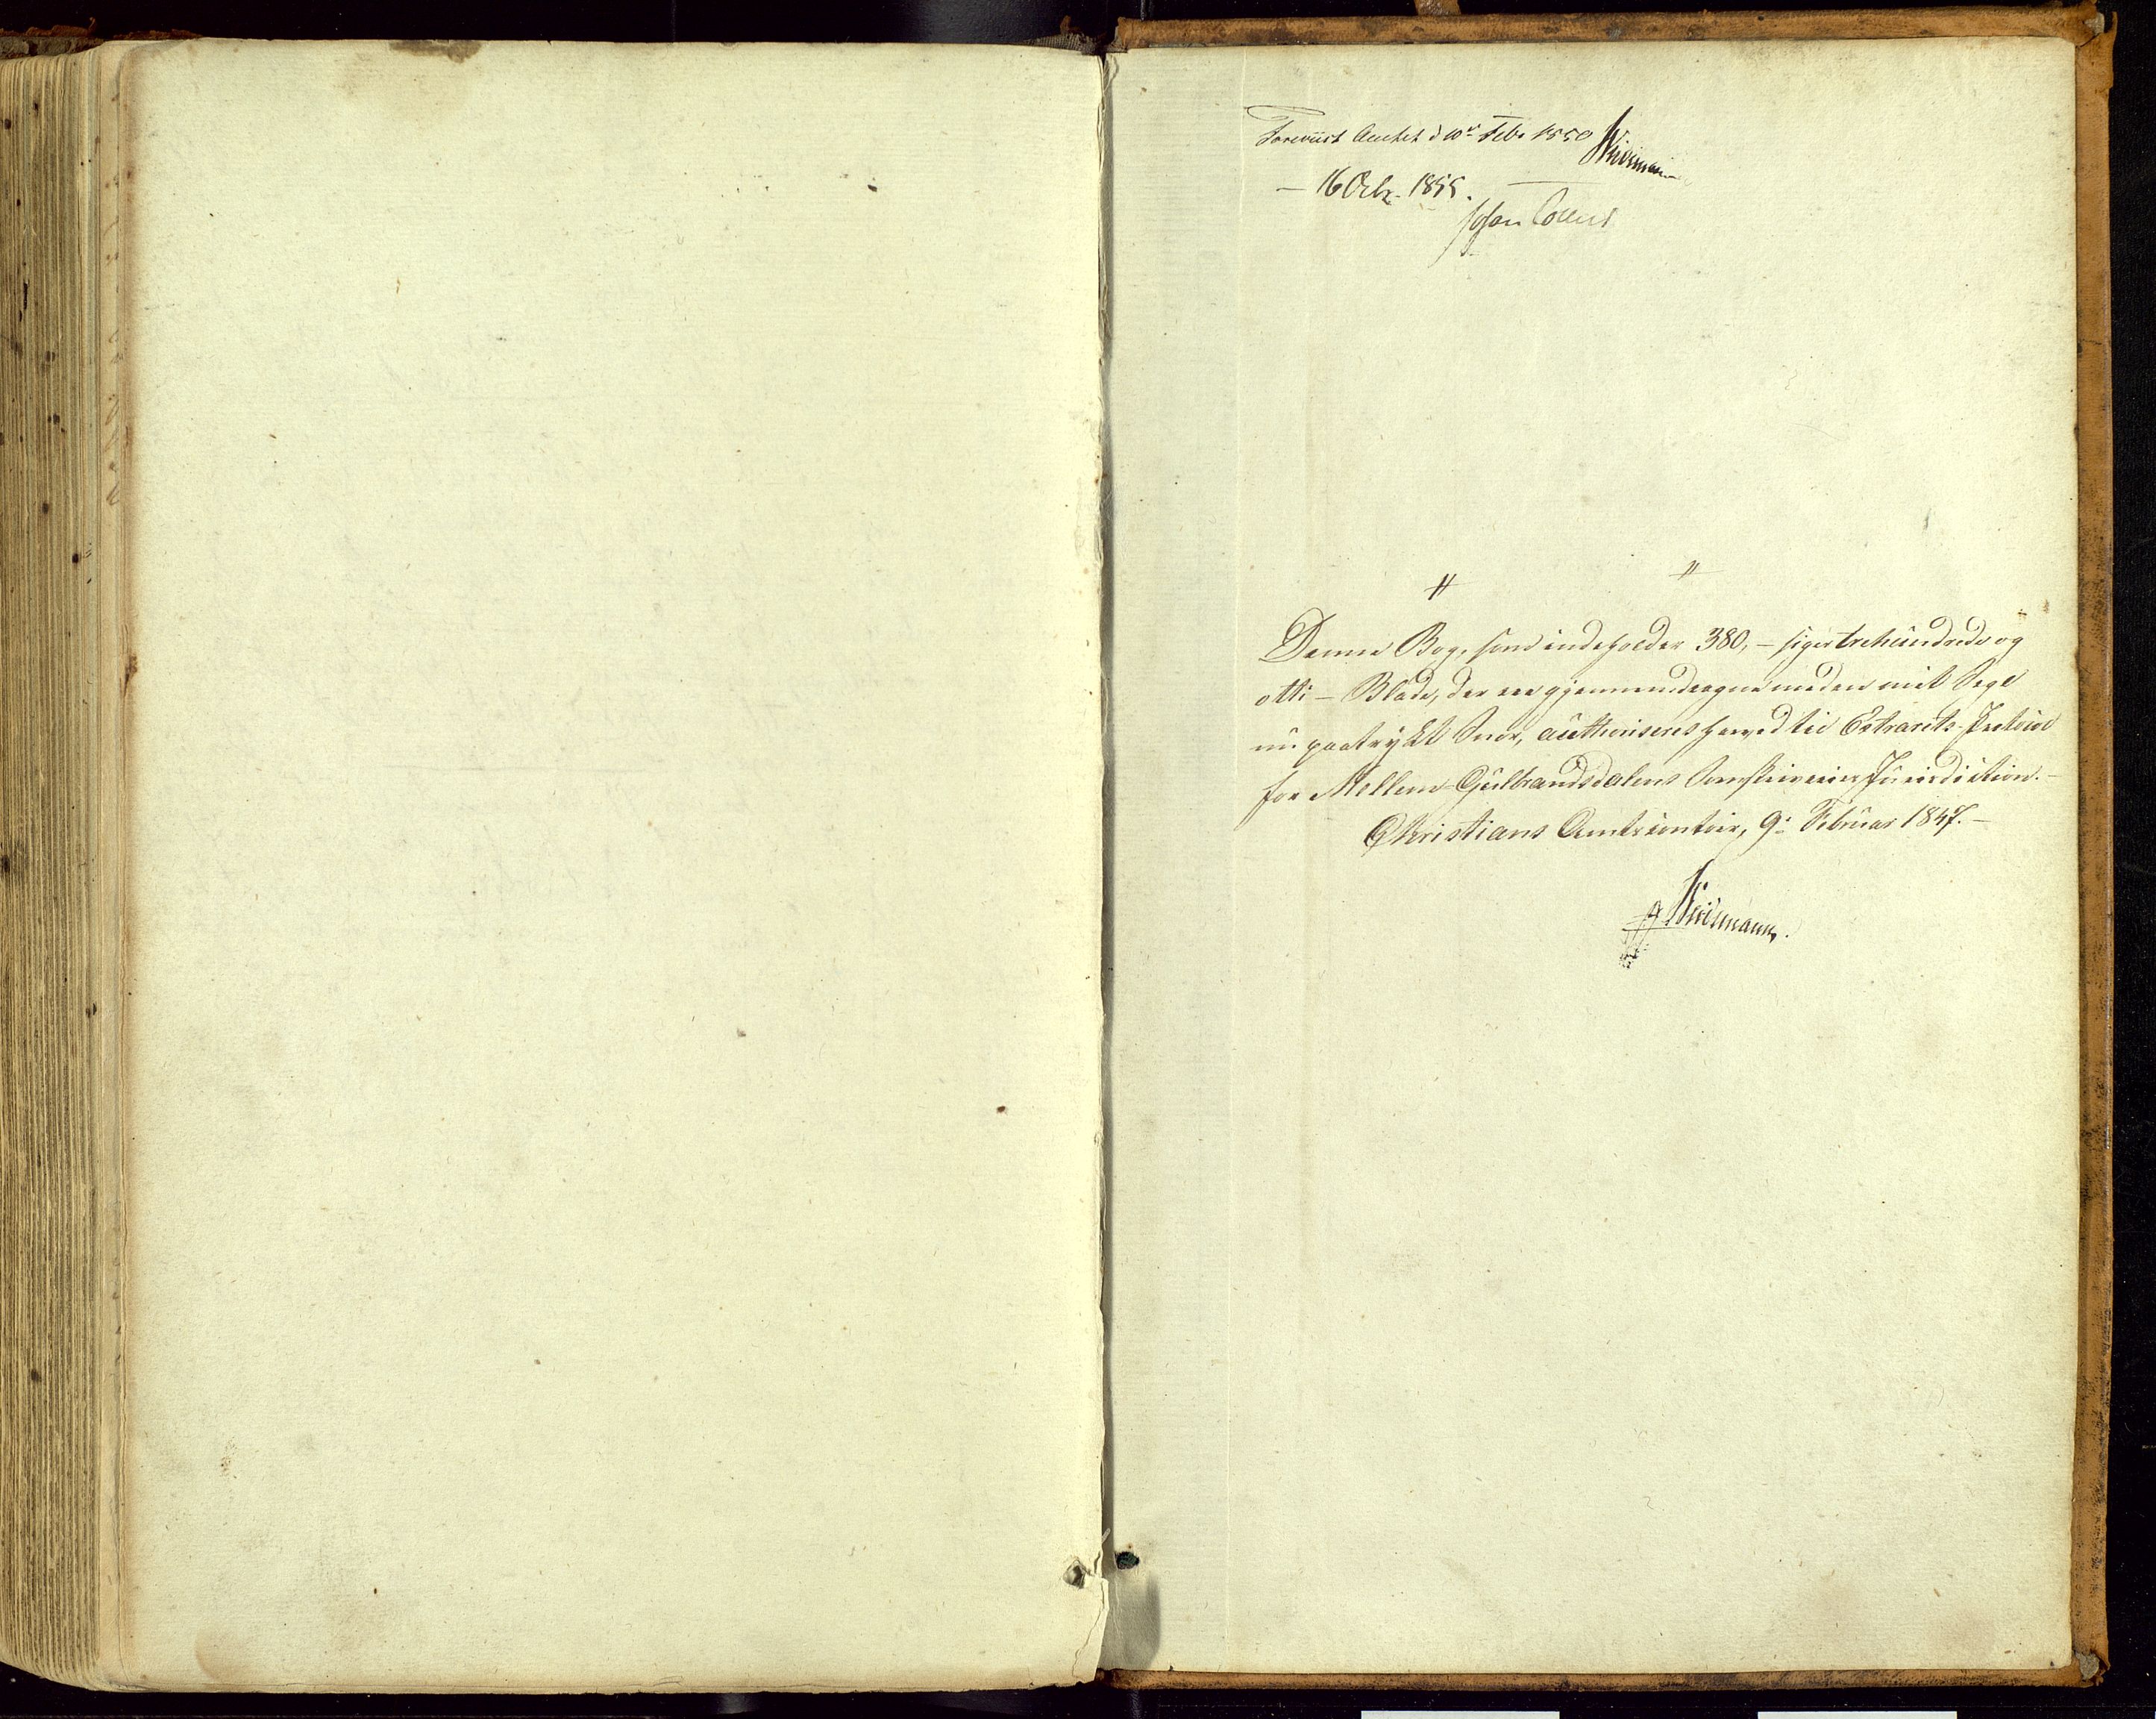 Foreviist Amtet d 10de Febr 1850 Weidemann
— 16 Octbr. 1855.
Johan Collett
Denne Bog, som indeholder 380, – siger trehundrede og
otti – Blade, der ere gjennemdragne med en mit Segl
paatrykt Snor, authoriseres herved til Extrarets-Protocol
for Mellem-Gulbrandsdalens Sorenskriveries Jurisdiction. –
Christians Amtscontoir, 9de Februar 1847. –
Weidemann.